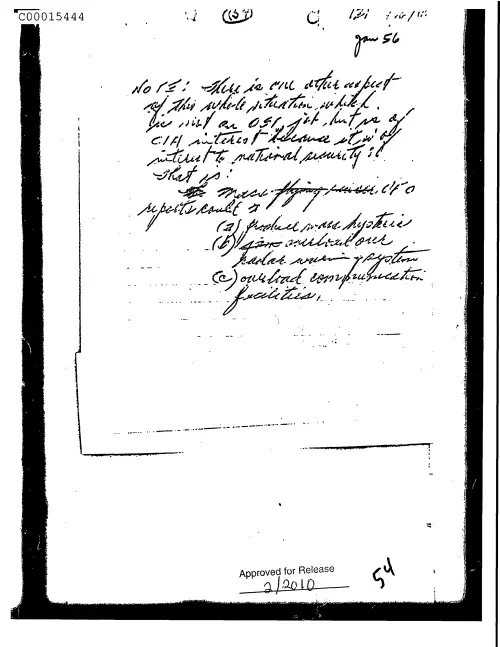 C00015444
(154)
Jan 56
NOTE: There is one other aspect
of this whole situation which
is not an OSI job, but is of
CIA interest because it is of
interest to national security:
That is:
Mass flying saucer, UFO
reports could
(a) produce mass hysteria
(b) overload our
radar warning system
(c) overload communication
facilities.
Approved for Release
2/2010
54